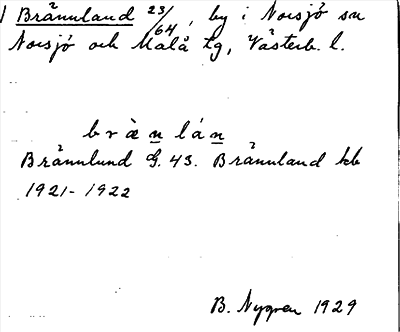 1 Brännland 23/64, by i Norsjö sn
Norsjö och Malå tg, Västerb. l.
b r æ̀ n l á n
Brännlund G. 43. Brännland kb
1921-1922
B. Nygren 1929